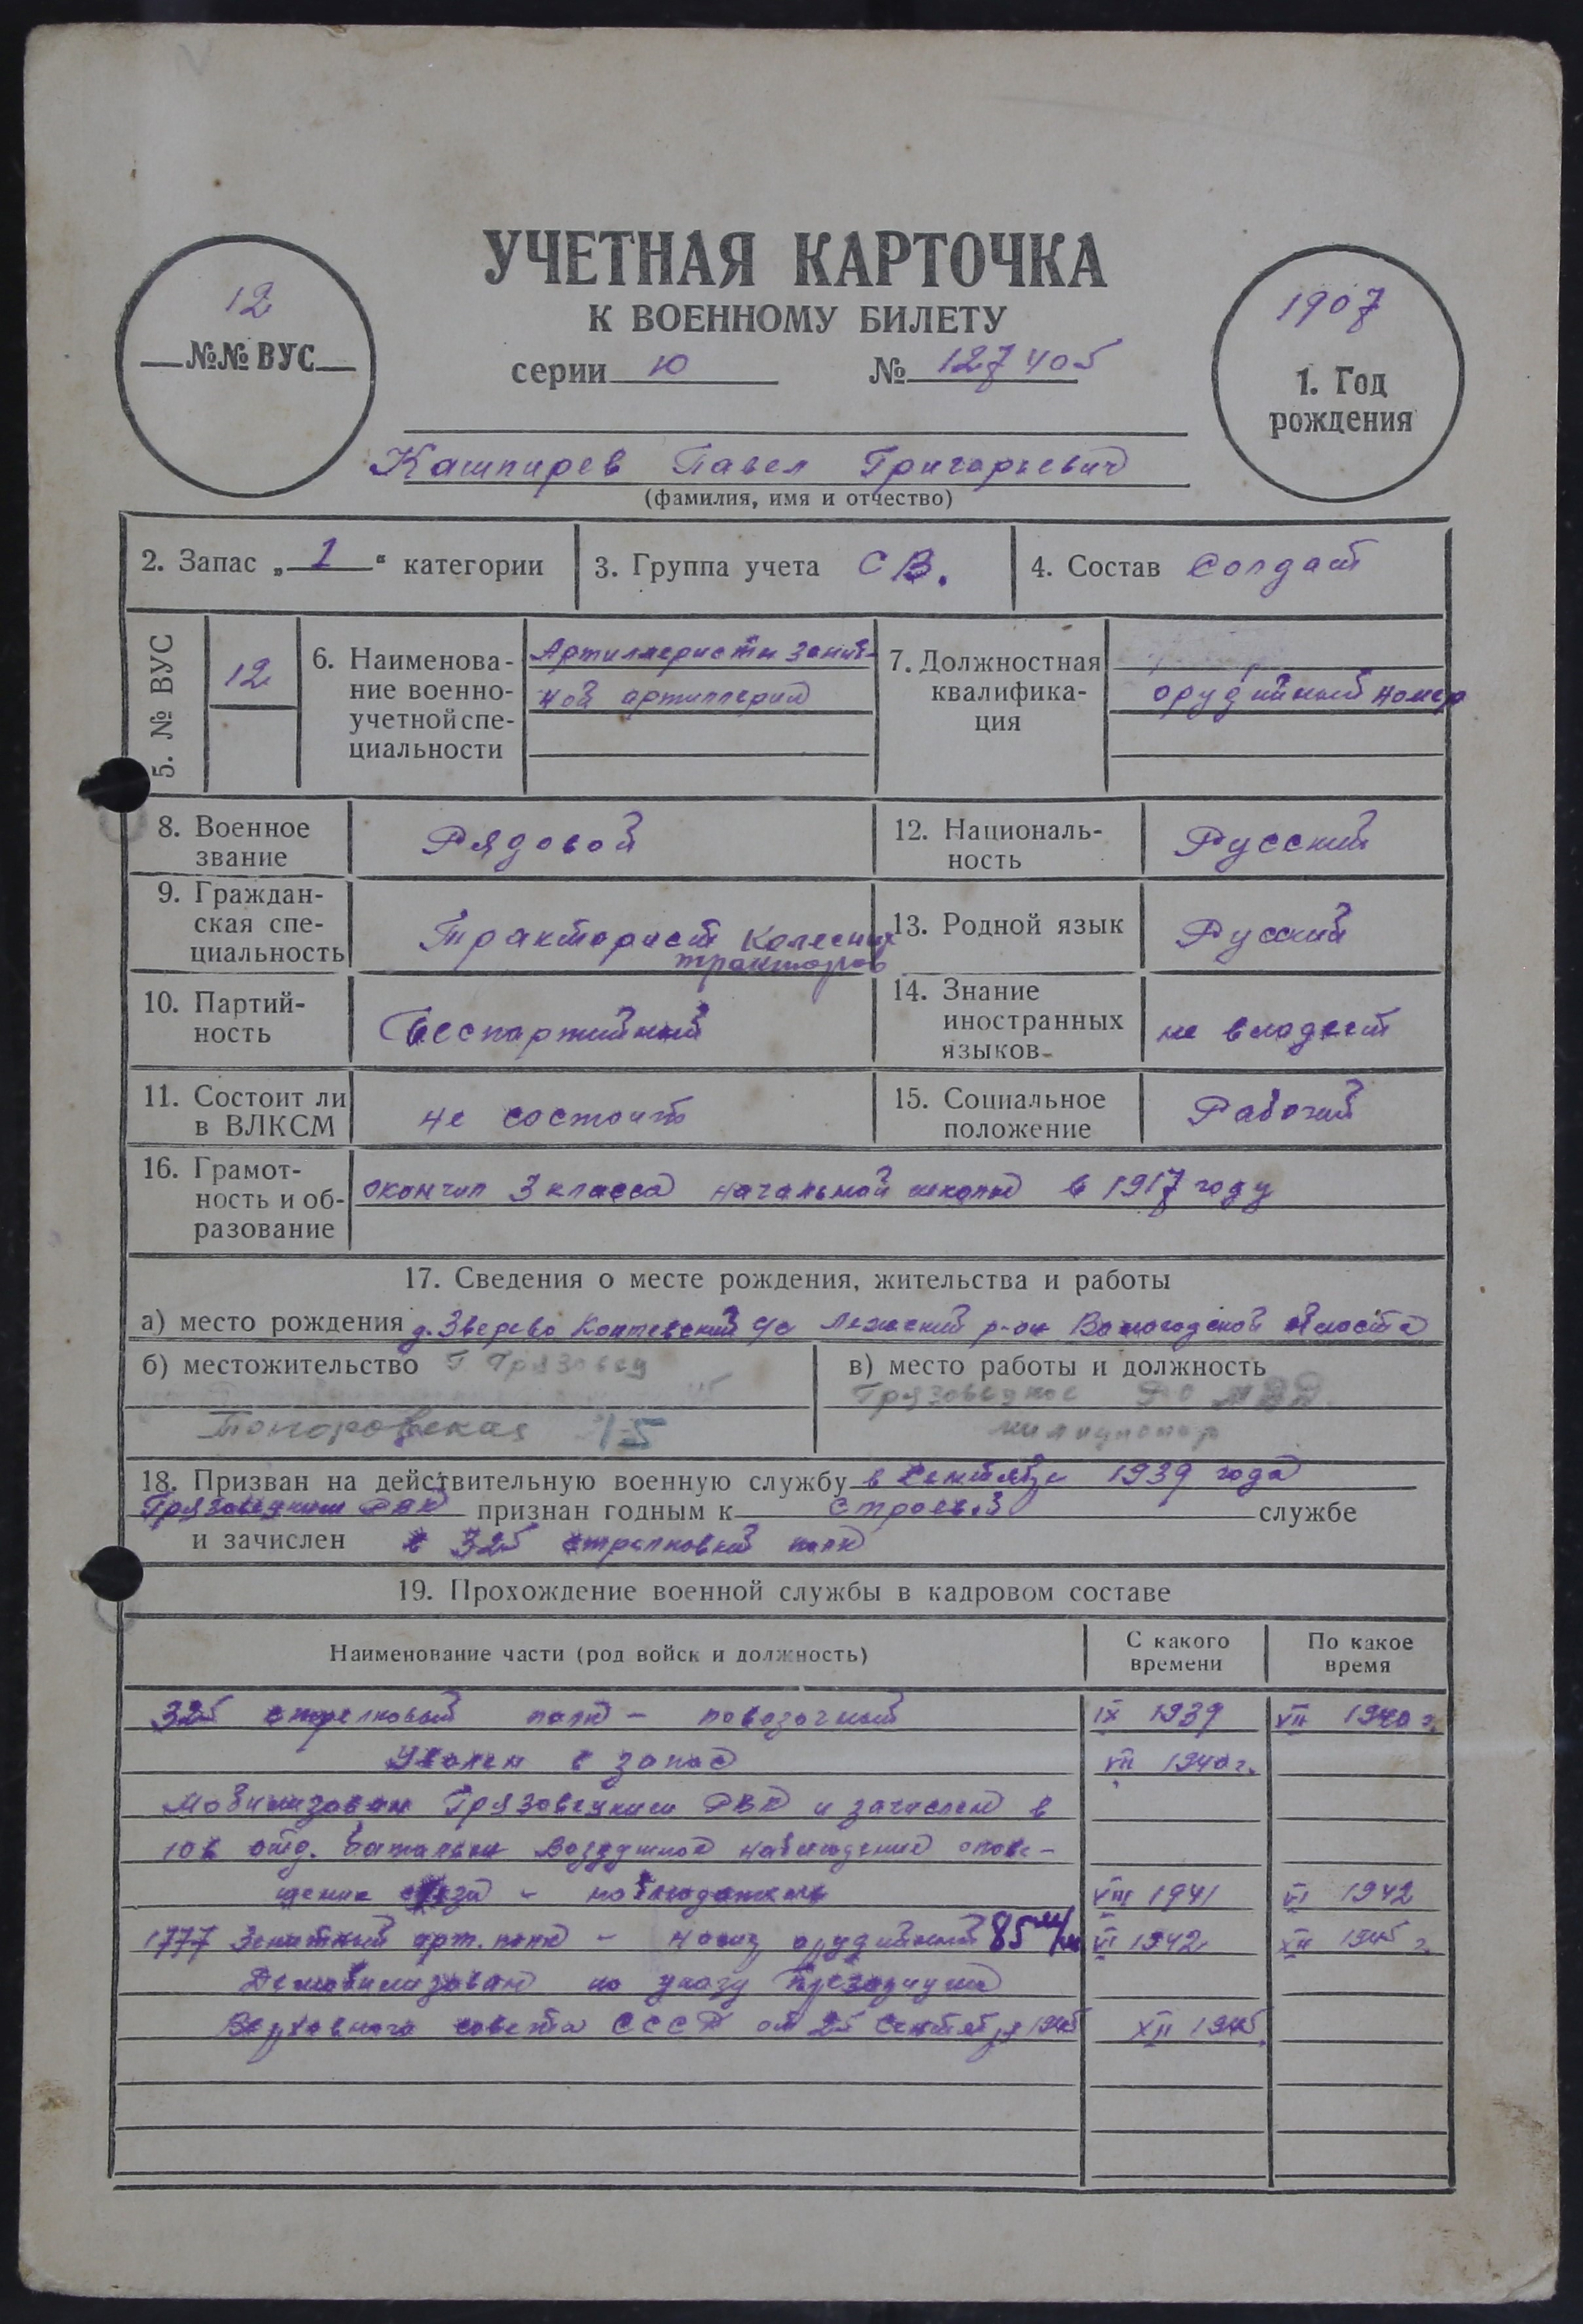 УЧЕТНАЯ КАРТОЧКА
К ВОЕННОМУ БИЛЕТУ
серии ю № 127405
12
№№ ВУС
1907
1. Год
рождения
Кашпирев Павел Григорьевич
(фамилия, имя и отчество)
2. Запас „1“ категории
3. Группа учета СВ.
4. Состав Солдат
5. № ВУС
12
6. Наименова-
ние военно-
учетной спе-
циальности
Артиллеристы зенит-
ной артиллерии
7. Должностная
квалифика-
ция
орудийный номер
8. Военное
звание
Рядовой
12. Националь-
ность
Русский
9. Граждан-
ская спе-
циальность
Тракторист колесных
тракторов
13. Родной язык
Русский
10. Партий-
ность
Беспартийный
14. Знание
иностранных
языков
не владеет
11. Состоит ли
в ВЛКСМ
не состоит
15. Социальное
положение
Рабочий
16. Грамот-
ность и об-
разование
окончил 3 класса начальной школы в 1917 году
17. Сведения о месте рождения, жительства и работы
а) место рождения д. Зверево Коптевский с/с Лежский р-он Вологодской области
б) местожительство г. Грязовец
Топоровская 15
в) место работы и должность
Грязовецкое РО МВД
милиционер
18. Призван на действительную военную службу в Сентябре 1939 года
Грязовецким РВК признан годным к строевой службе
и зачислен в 325 стрелковый полк
19. Прохождение военной службы в кадровом составе
Наименование части (род войск и должность)
С какого
времени
По какое
время
325 стрелковый полк – повозочный IX 1939 VII 1940 г.
Уволен в запас VII 1940 г.
Мобилизован Грязовецким РВК и зачислен в
отд. батальон Воздушное наблюдение опове-
щение связи – наблюдатель VIII 1941 VI 1942
1777 Зенитный арт. полк – орудийный 85 м/м VI 1942 XII 1945 г.
Демобилизован по указу Президиума
Верховного совета СССР от 25 Сентября 1945 XII 1945